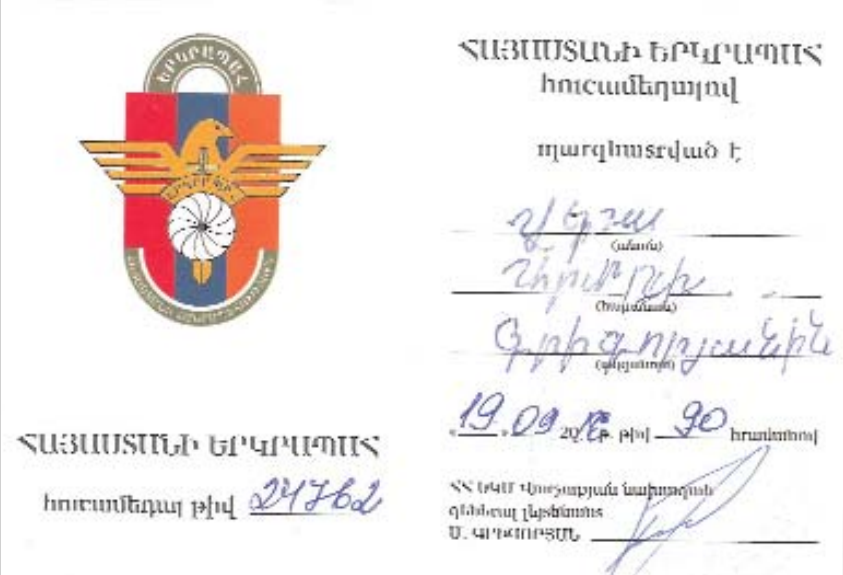 ԵՐԿՐԱՊԱՀ
ԵՐԿՐԱՊԱՀ
ՀԱՅԱՍՏԱՆԻ ԵՐԿՐԱՊԱՀ
հուշամեդալ թիվ 24762
ՀԱՅԱՍՏԱՆԻ ԵՐԿՐԱՊԱՀ
հուշամեդալով
պարգևատրված է
(անուն)
(հայրանուն)
Գրիգորյանին
(ազգանուն)
«19» 09 20 թ. թիվ 90 հրամանով
ՀՀ ԵԿՄ վարչության նախագահ
գեներալ լեյտենանտ
Մ. ԳՐԻԳՈՐՅԱՆ